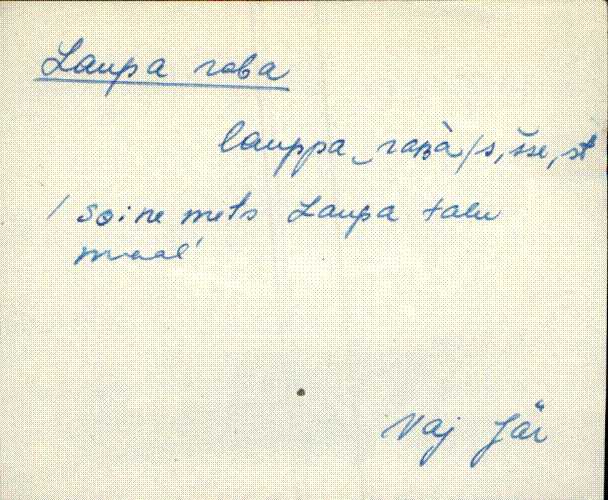 Laupa raba
lauppa‿raʙà/s, sse, st
/ Soine mets Laupa talu
maal /
Vaj Jär